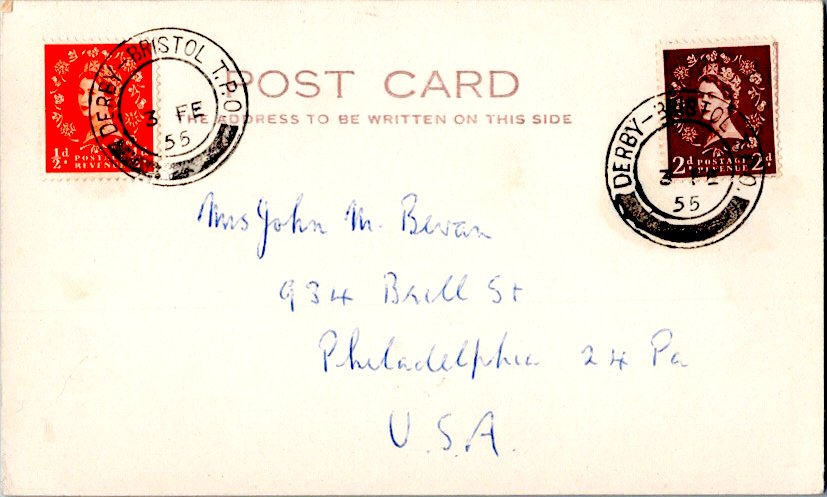 DERBY-BRISTOL T.P.O.
3 FE
55
½d POSTAGE
REVENUE
POST CARD
THE ADDRESS TO BE WRITTEN ON THIS SIDE
DERBY-BRISTOL T.P.O.
3 FE
55
2d POSTAGE 2d
REVENUE
Mrs John M. Bevan
934 Brill St
Philadelphia 24 Pa
U.S.A.